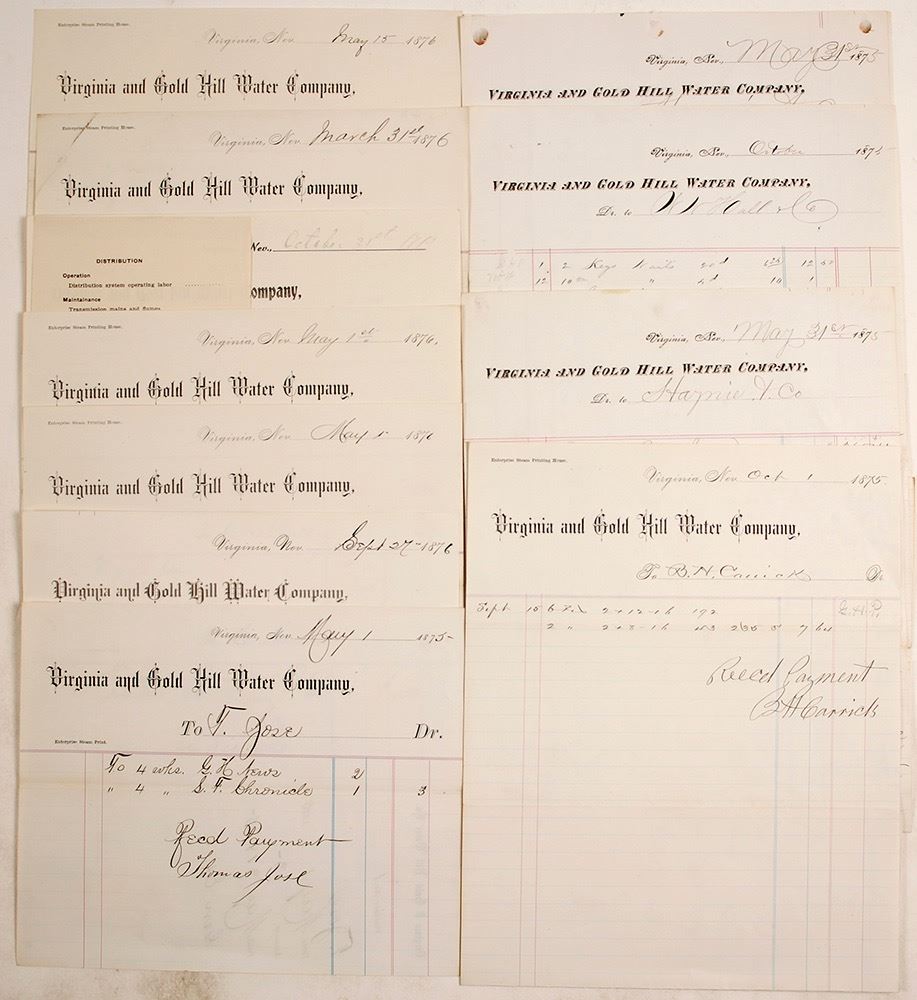 Enterprise Steam Printing House.
Virginia, Nev. May 15 1876
Virginia and Gold Hill Water Company,
Enterprise Steam Printing House.
Virginia, Nev. March 31st 1876
Virginia and Gold Hill Water Company,
Nev., October 31st
ompany,
DISTRIBUTION
Operation
Distribution system operating labor
Maintainance
Transmission mains and flumes
Enterprise Steam Printing House.
Virginia, Nev. May 1st 1876,
Virginia and Gold Hill Water Company,
Enterprise Steam Printing House.
Virginia, Nev. May 1 1876
Virginia and Gold Hill Water Company,
Virginia, Nev. Sept 27 1876
Virginia and Gold Hill Water Company,
Virginia, Nev. May 1 1875
Virginia and Gold Hill Water Company,
To T. Jose Dr.
Enterprise Steam Print.
To 4 wks. G. H News 2
" 4 " S. F. Chronicle 1 3
Recd Payment
Thomas Jose
Virginia, Nev., May 31st 1875
VIRGINIA AND GOLD HILL WATER COMPANY,
Virginia, Nev., October 1875
VIRGINIA AND GOLD HILL WATER COMPANY,
Dr. to Hall & Co
1 2 Kegs Nails 20d 12
12 10
Virginia, Nev., May 31st 1875
VIRGINIA AND GOLD HILL WATER COMPANY,
Dr. to Co
Enterprise Steam Printing House.
Virginia, Nev. Oct 1 1875.
Virginia and Gold Hill Water Company,
To B. H. Carrick Dr
Sept 15 6 2-12-16 192 G.H.P.
2 "
Recd Payment
B H Carrick